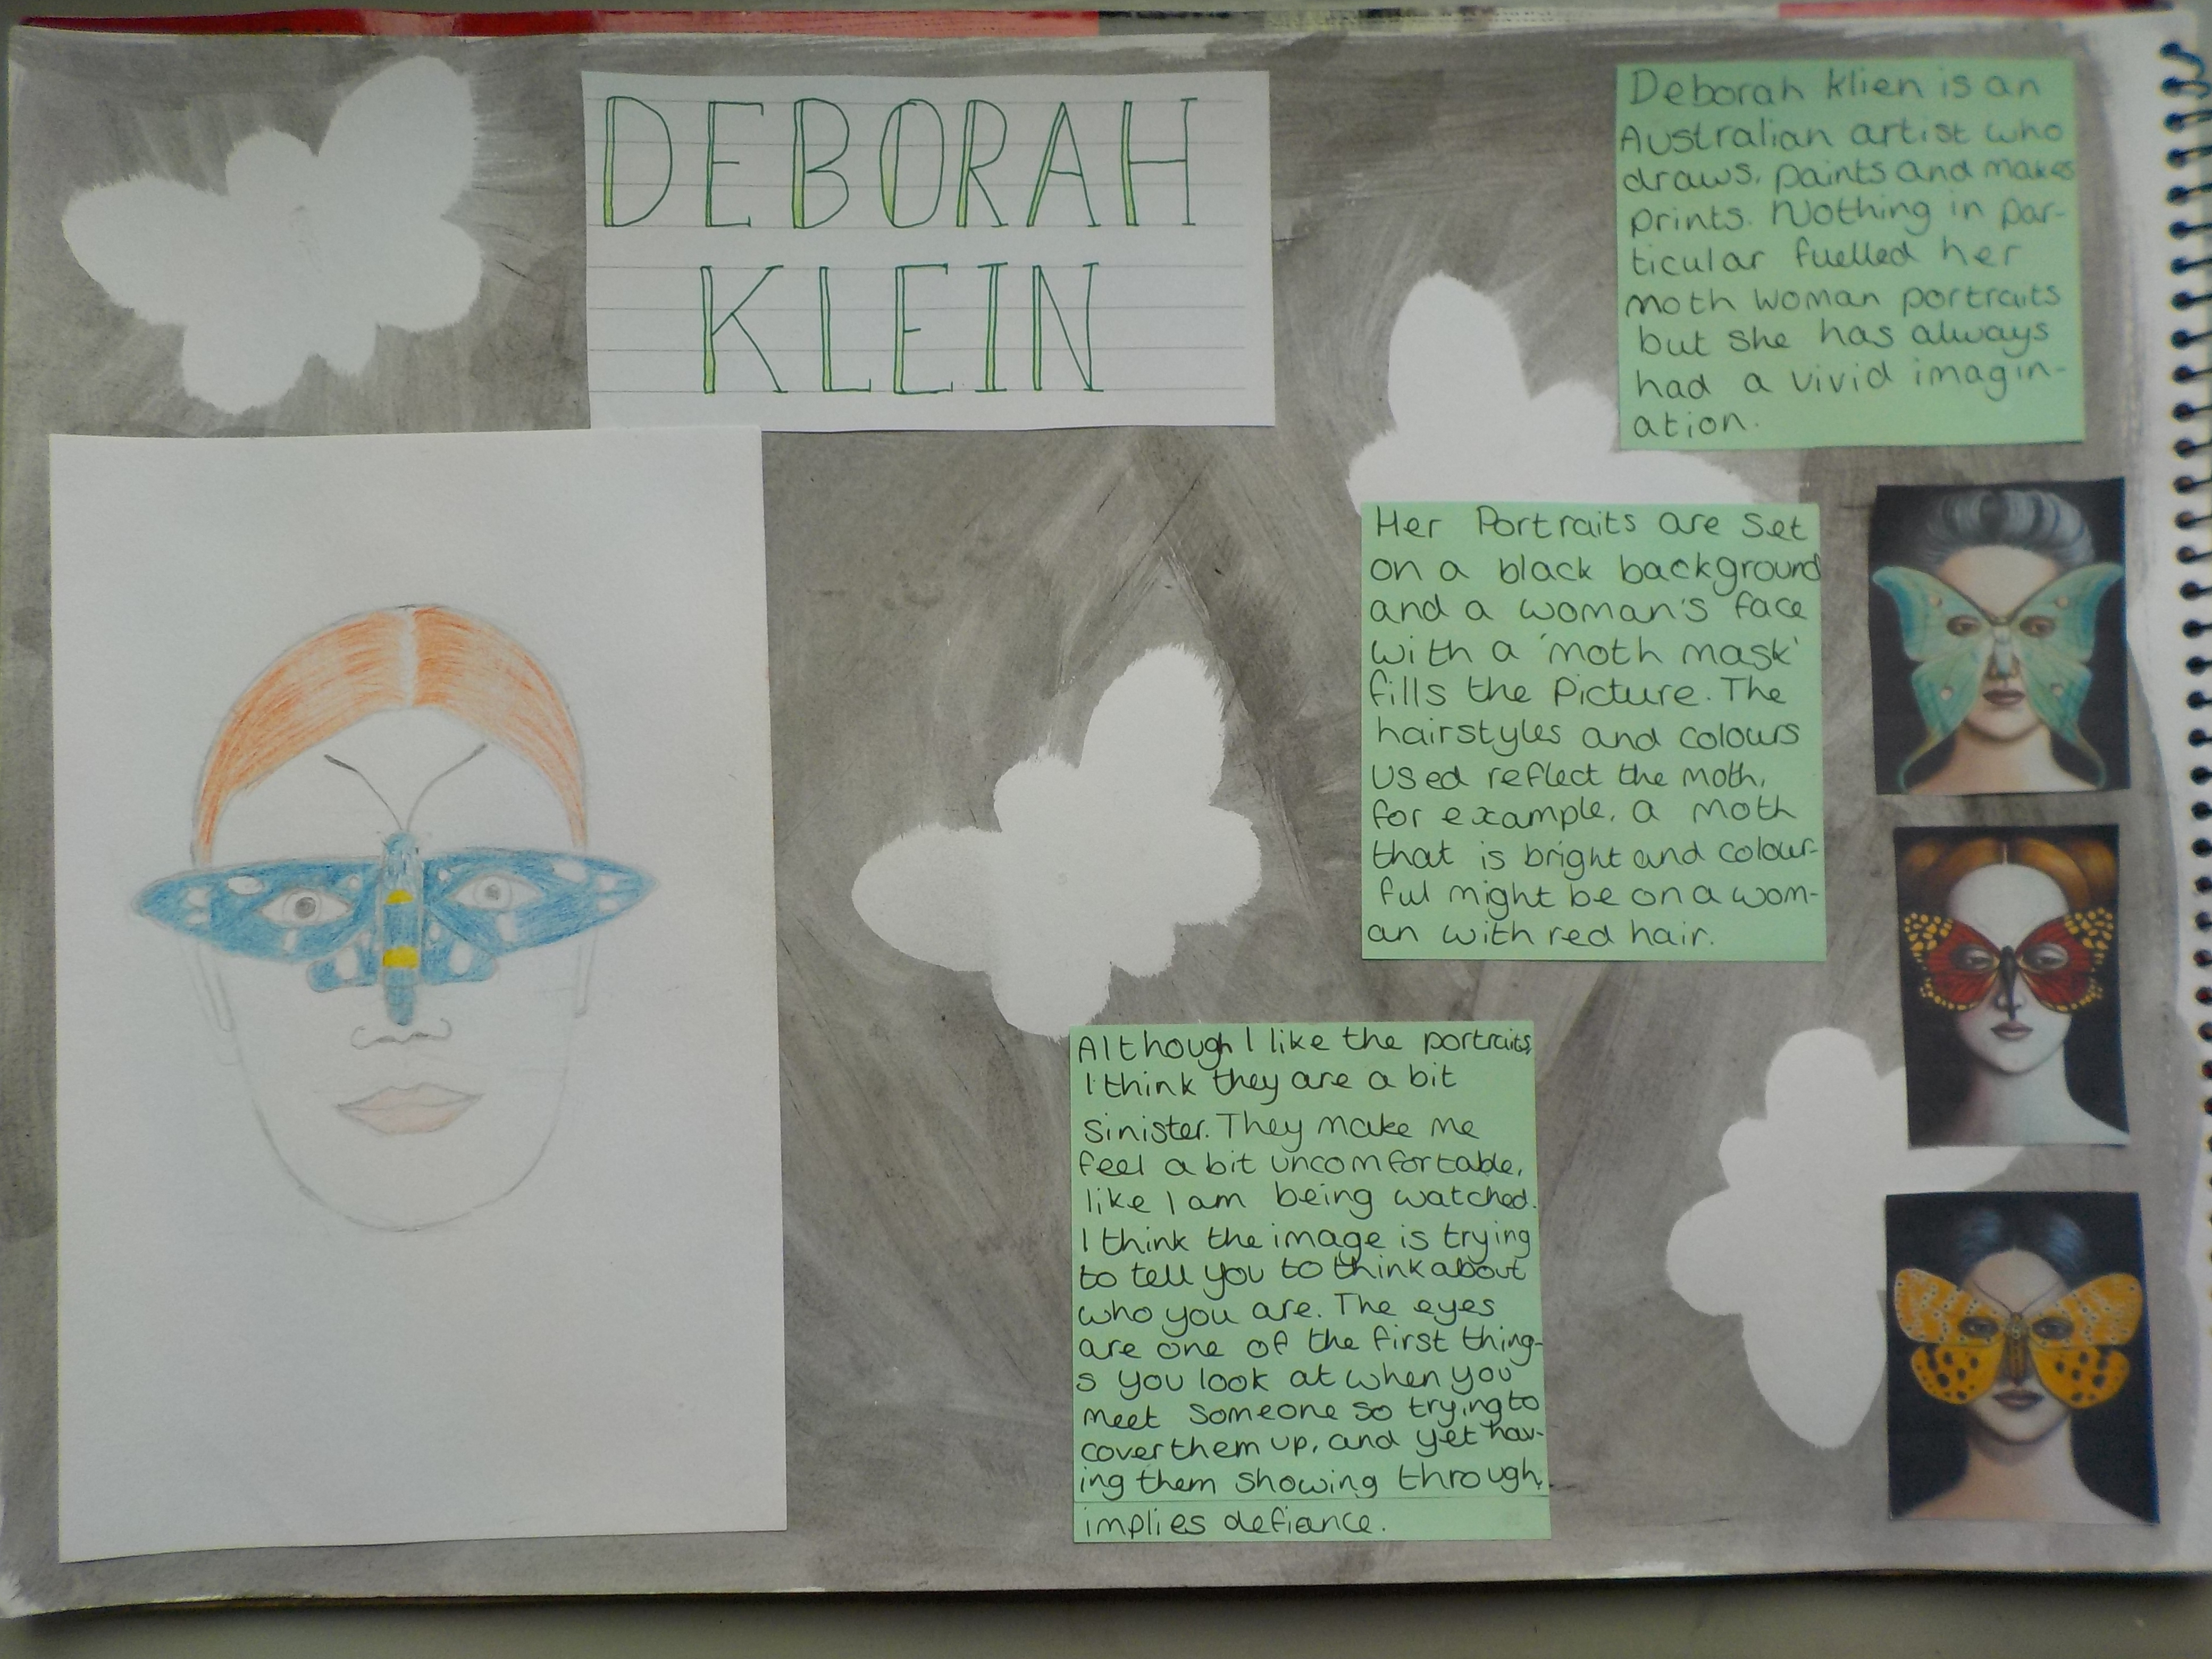 DEBORAH
KLEIN
Deborah Klien is an
Australian artist who
draws, paints and makes
prints. Nothing in par-
ticular fuelled her
moth woman portraits
but she has always
had a vivid imagin-
ation.
Her Portraits are set
on a black background
and a woman's face
with a 'moth mask'
fills the Picture. The
hairstyles and colours
used reflect the moth,
for example, a moth
that is bright and colour-
ful might be on a wom-
an with red hair.
Although I like the portraits,
I think they are a bit
sinister. They make me
feel a bit uncomfortable,
like I am being watched.
I think the image is trying
to tell you to think about
who you are. The eyes
are one of the first thing-
s you look at when you
meet someone so trying to
cover them up, and yet hav-
ing them showing through,
implies defiance.